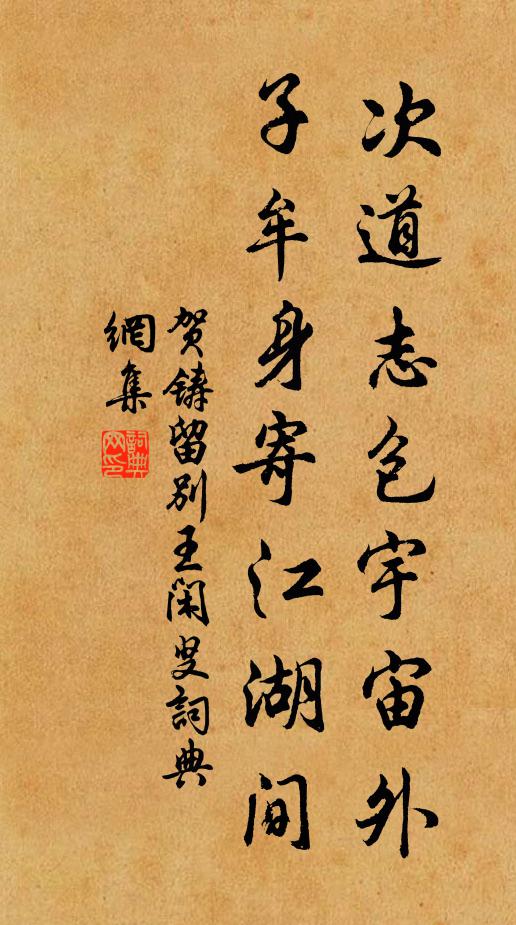 次道志包宇宙外
子牟身寄江湖间
贺铸留别王闲叟詞典
網集
詞典
网印